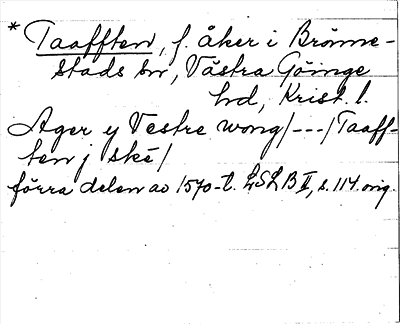 * Taafften, f. åker i Brönne-
stads sn, Västra Göinge
hd, Krist. l.
Ager y Vestre wong/---/Taaff-
ten j ské/
förra delen av 1570-t. LSLB II, s. 114. orig.